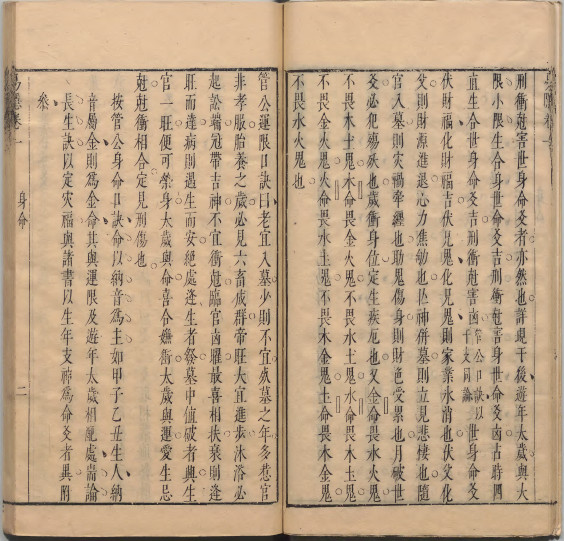 刑衝尅害世身命爻者亦然也詳現于後遊年太歲與大
限小限生合身世命爻吉刑衝尅害身世命爻凶古時
宜生合世身命爻吉刑衝尅害凶管公口訣以干支同論世身命爻
伏財福化財福吉伏兄鬼化兄鬼則家業水消也伏父化
父則財源進退心力焦勞也神併墓則立見悲悽也隨
官入墓則灾禍牽纏也助鬼傷身則財色受累也月破世
爻必犯疾也歲衝身位定生疾厄也又金命畏火鬼
不畏木土鬼木命畏金火鬼不畏水土鬼水命畏木土鬼
不畏金火鬼火命畏水土鬼不畏木金鬼土命畏木金鬼
不畏水火鬼也
管公運限口訣曰老宜入墓少則不宜墓之年多惹官
非孝服胎養之歲必見六畜成群帝旺大宜進步沐浴必
起訟端冠帶吉神不宜衝尅臨官凶曜最喜相扶衰則逢
旺而達病則遇生而安絕處逢生者發墓中值破者興生
官一旺便可榮身太歲與命喜合嫌衝太歲與運愛生忌
尅尅衝相合定見刑傷也
按管公身命口訣命以納音為主如甲子乙丑生人納
音屬金則為金命其與運限及遊年太歲相處耑論
長生訣以定灾福與諸書以生年支神為命爻者異附
叅
易隱卷一
身命
二